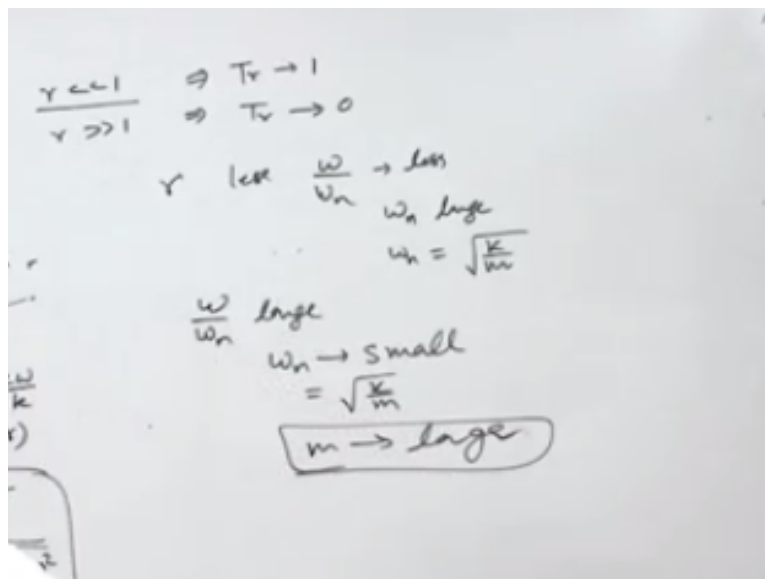 r << 1 ⇒ Tr → 1
r >> 1 ⇒ Tr → 0
r less ω/ωn → less
ωn large
ωn = √(k/m)
ω/ωn large
ωn → small
= √(k/m)
m → large
ω/k
)
r²